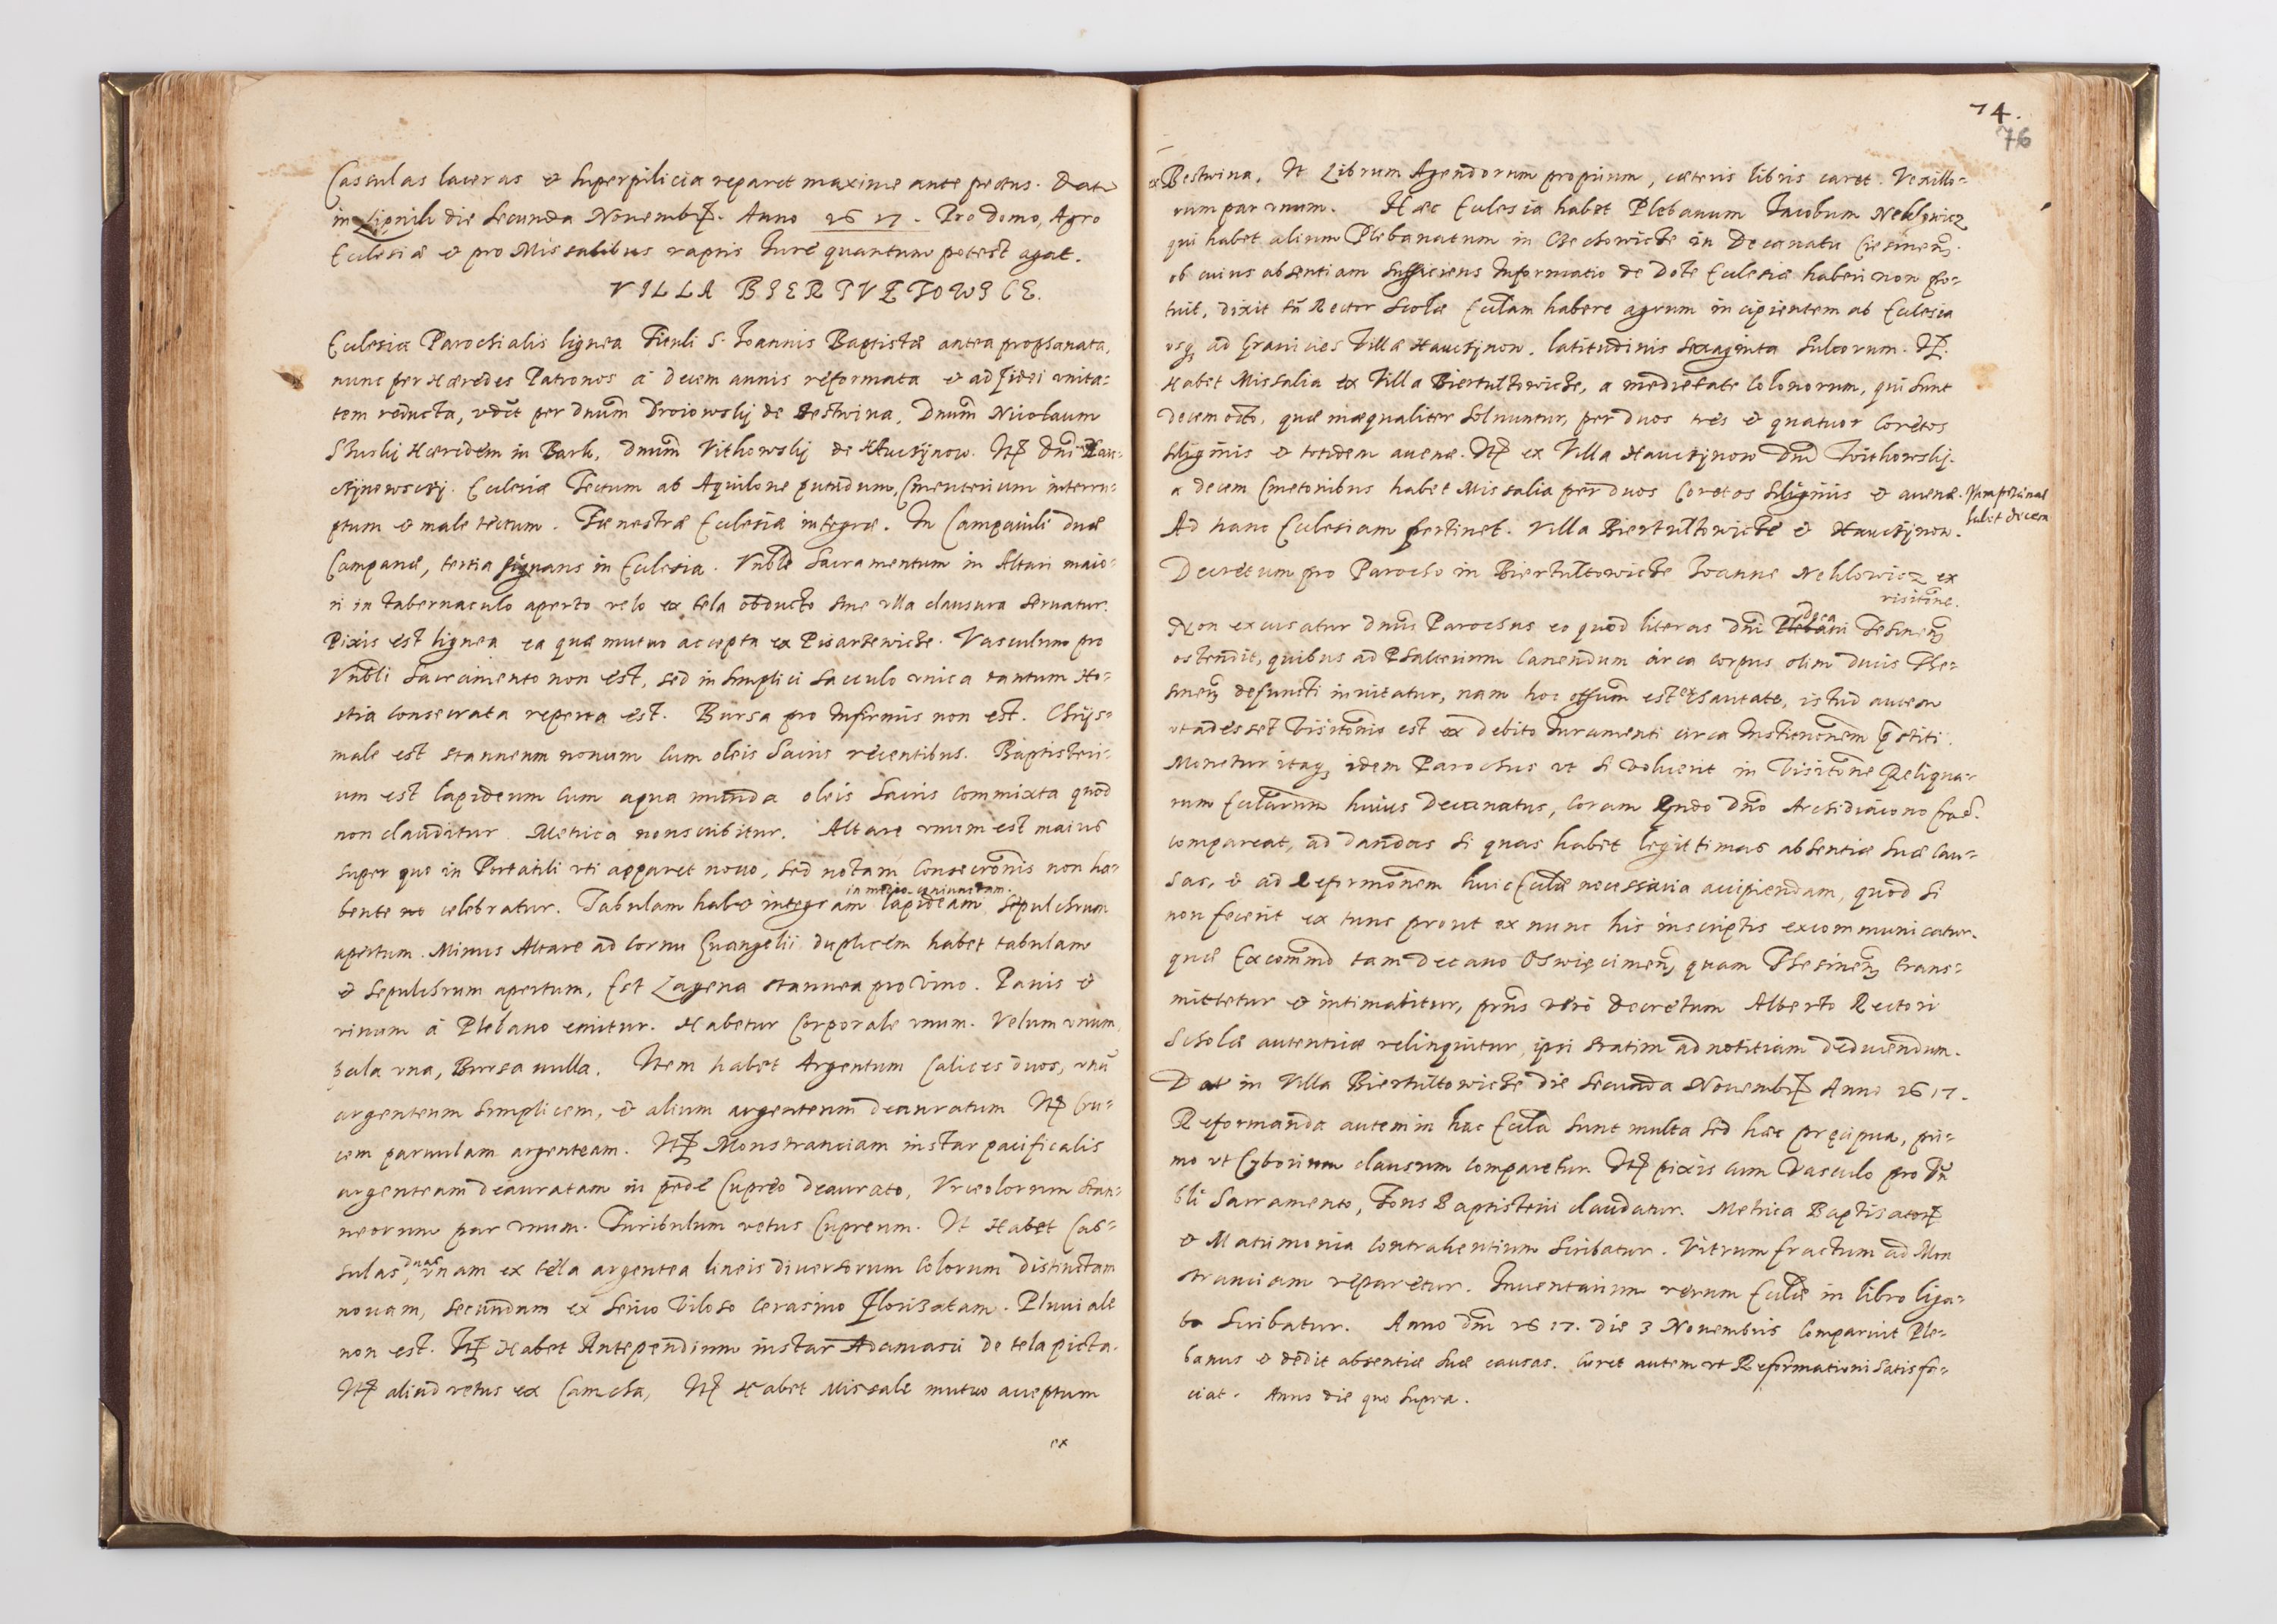 Casulas laceras et superpilicia reparet maxime ante pectus. Dat
in Lipnik die secunda Novembr. Anno 1617. Pro domo, Agro
Ecclesiæ et pro Missalibus raptis Jure quantum potest agat.
VILLA BIERTVLTOWICE.
Ecclesia Parochialis lignea Tituli S. Joannis Baptistæ antea prophanata,
nunc per Hæredes Patronos à decem annis reformata et ad fidei vnita=
tem reducta, vdzt per dnum Broiowskj de Bestwina, Dnum Nicolaum
Sduskj Hæredem in Bark, dnum Vithowskj de Haucijnow. Itẽ dni Hau=
cijnowscij. Ecclesiæ Tectum ab Aquilone putridum, Cmenterium interru=
ptum et male tectum. Fenestræ Ecclesiæ integræ. In Campanili duæ
Campanæ, tertia signans in Ecclesia. Vnble Sacramentum in Altari maio=
ri in tabernaculo aperto velo ex tela obducto sine vlla clausura servatur.
Pixis est lignea ea quæ mutuo accepta ex Pisartzewicze. Vasculum pro
Vnbli Sacramento non est, sed in simplici sacculo vnica tantum Ho=
stia consecrata reperta est. Bursa pro Infirmis non est. Chrijs=
male est stanneum novum cum oleis sacris recentibus. Baptisteri=
um est lapideum cum aqua munda oleis sacris commixta quod
non clauditur. Metrica non scribitur. Altare vnum est maius
super quo in Portatili vti apparet novo, sed notam Consecronis non ha=
bente no celebratur. Tabulam habet integram lapideam in medio coniunctam. sepulchrum
apertum. Minus Altare ad Cornu Euangelii duplicem habet tabulam
et sepulchrum apertum, Est Lagena stannea pro Vino. Panis et
vinum à Plebano emitur. Habetur Corporale vnum. Velum vnum,
pala vna, Bursa nulla. Item habet Argentum Calices duos, vnũ
argenteum simplicem, et alium argenteum deauratum Itẽ Cru=
cem parvulam argenteam. Itẽ Monstranciam instar pacificalis
argenteam deauratam in pede Cupreo deaurato, Vrceolorum stan=
neorum par vnum. Turibulum vetus Cupreum. It Habet Cas=
sulas duas, vnam ex tela argentea lineis diversorum Colorum distinctam
novam, secundam ex serico Viloso Cerasino florisatam. Pluviale
non est. Itẽ Habet Antependium instar Adamasci de tela picta.
Itẽ aliud vetus ex Camcha, Itẽ Habet Missale mutuo acceptum
ex
74.
76
ex Bestwina. It Librum Agendorum proprium, cæteris libris caret. Vexillo=
rum par vnum. Hæc Ecclesia habet Plebanum Jacobum Neklowicz
qui habet alium Plebanatum in Czechowicze in Decanatu Ciesinens.
ob cuius absentiam sufficiens Informatio de Dote Ecclesiæ haberi non po=
tuit, dixit tñ Rector Scolæ Ecclam habere agrum incipientem ab Ecclesia
vsq ad Granicies Villæ Haucijnow. latitudinis sexaginta sulcorum. Itẽ.
Habet Missalia ex Villa Biertultowicze, a medietate Colonorum, qui sunt
decem octo, quæ inæqualiter solvuntur, per duos tres et quatuor Coretos
siliginis et totidem avenæ. Itẽ ex Villa Haucijnow Dni Withowskj.
a decem Cmetonibus habet Missalia per duos Coretos siliginis et avenæ.
habet decem
Ad hanc Ecclesiam pertinet. Villa Biertultowicze et Haucijnow.
Decretum pro Parocho in Biertultowicze Joanne Neklowicz ex
visitone.
Non excusatur dnus Parochus eo quod literas dni Deca Plebani Tesinens
ostendit, quibus ad Psalterium Canendum circa corpus olim ducis The=
sinens defuncti invitatur, nam hoc offm est ex charitate, istud autem
vt adesset Visitonis est ex debito Juramenti circa Institonem pstiti.
Monetur itaq idem Parochus vt si voluerit in Visitone Reliqua=
rum Ecclarum huius Decanatus, Coram Rndo dno Archidiacono Crac.
compareat, ad dandas si quas habet legittimas absentiæ suæ Cau=
sas, et ad reformonem huic Ecclæ necessaria accipiendam, quod si
non fecerit ex tunc prout ex nunc his inscriptis excommunicatur.
quæ Excommo tam decano Oswięcimens quam Thesinens trans=
mittetur et intimabitur, pnns vero decretum Alberto Rectori
Scholæ autenticæ relinquitur ipsi statim ad notitiam deducendum.
Dat in Villa Biertultowicze die secunda Novembr Anno 1617.
Reformanda autem in hac Eccla sunt multa sed hæc pręcipua, pri=
mo vt Cyborium clausum comparetur Itẽ pixis cum Vasculo pro Vn
bli Sacramento, Fons Baptisterii claudatur. Metrica Baptisator
et Matrimonia Contrahentium scribatur. Vitrum fractum ad Mon
stranciam reparetur. Inventarium rerum Ecclæ in libro liga=
to scribatur. Anno dni 1617. die 3 Novembris Comparuit Ple=
banus et dedit absentiæ suæ causas. Curet autem vt Reformationi satisfa=
ciat. Anno die quo supra.